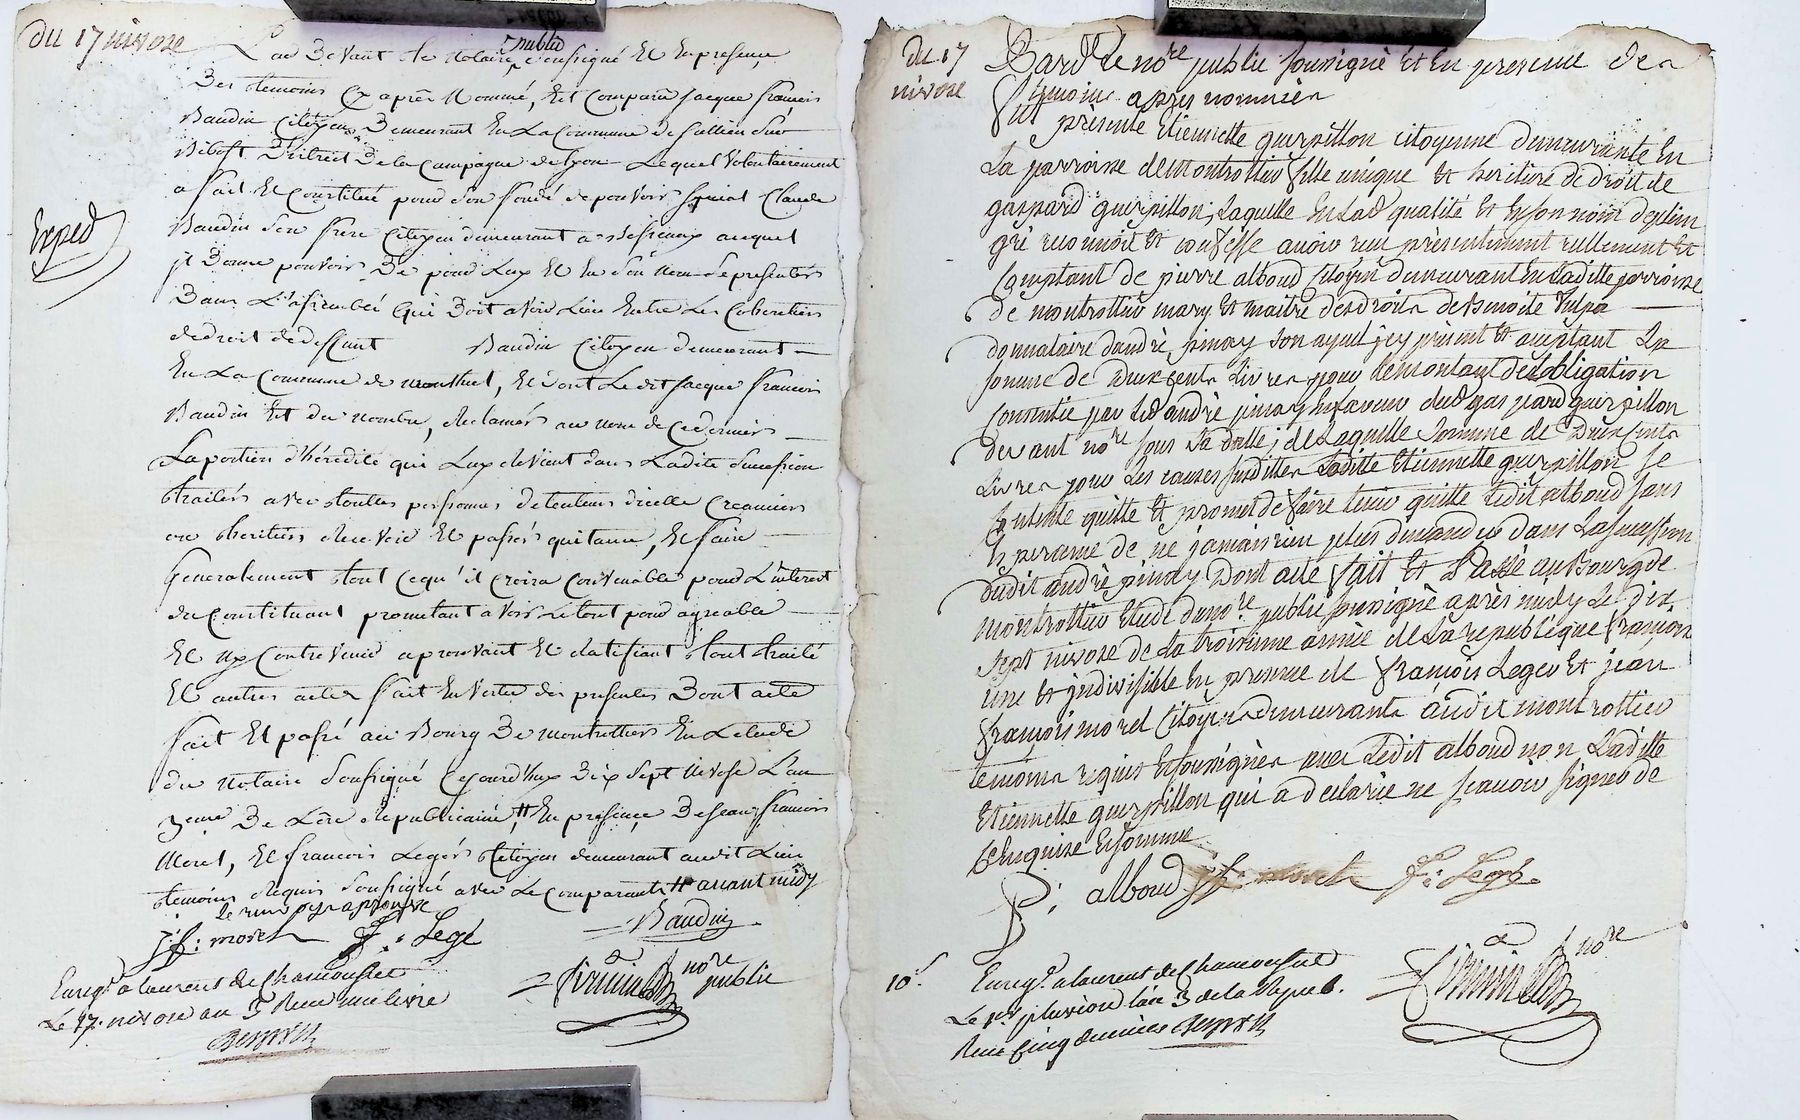 du 17 nivose
Par devant le Notaire public soussigné Et En presence
Des temoins Cy après Nommé, Est Comparu Jacque francois
Baudin Citoyen Demeurant En La Commune de
District De la Campagne de Lyon Lequel Volontairement
a fait Et Constitué pour Son fondé de pouvoir special Claude
Baudin Son frere Citoyen demeurant a auquel
jl Donne pouvoir De pour Luy Et En Son Nom Se presenter
Dans L'assemblée Qui Doit avoir Lieu Entre Les Coheretiers
de droit de defeunt Baudin Citoyen demeurant
En La Commune de Et dont Le dit Jacque francois
Baudin Est du Nombre, Reclamer au nom de Ce dernier
La portion d'hérédité qui Luy Revient dans Ladite Succession
traiter avec toutes personnes detenteurs d'icelle Creanciers
ou heritiers Recevoir Et passer quitance, Et faire
Generalement tout Ce qu'il Croira Convenable pour L'interet
du Constituant prometant avoir Le tout pour agreable
Et Ny Contrevenir aprouvant Et Ratifiant tout traité
Et autres actes fait En Vertu des presentes Dont acte
fait Et passé au Bourg De montrottier En Letude
du Notaire Soussigné Cejourd'huy Dix Sept Nivose L'an
3eme De Lère Republicaine, # En presence De Jean francois
Morel, Et francois Leger Citoyen demeurant audit Lieu
temoins Requis Soussigné avec Le Comparant # avant midy
le renvoy approuvé
J: f: morel F: Legé
Baudin
nore public
Enregé a laurent de Chamousset
Le 17 nivose an 3 Reçu une livre
Exped
du 17 nivose
Pard. Le nore public soussigné Et En presence des
temoins après nommés
fut présente Etiennette guerpillon citoyenne demeurante En
La parroisse de Montrottier fille unique Et heritiere de droit de
gaspard guerpillon, Laquelle En Lad. qualité Et En son nom de plein
gré reconnoit Et confesse avoir reçu présentement reellement Et
Comptant de pierre alboud Citoyen demeurant En Laditte parroisse
de montrottier mary Et maitre des droits de Benoite
donnataire d'andré pinay son ayeul jcy présent Et aceptant La
somme de Deux Cents Livres pour Le montant de L'obligation
Consentie par Led. andré pinay En faveur dud. gaspard guerpillon
devant nore sous Sa datte; de Laquelle Somme de Deux Cents
Livres pour Les causes susdittes Laditte Etiennette guerpillon se
Contente quitte Et promet de faire tenir quitte Ledit alboud sans
Esperance de ne jamais rien plus demander dans La succession
dudit andré pinay Dont acte fait Et Passé au Bourg de
Montrottier Etude du nore public soussigné après midy Le dix
sept nivose de La troisieme année de La republique française
une Et jndivisible En presence de françois Leger Et jean
françois morel Citoyens demeurants audit montrottier
temoins requis Et soussignés avec Ledit alboud non Laditte
Etiennette guerpillon qui a déclarée ne sçavoir signer de
Ce Enquise Et sommée
P: alboud J f: morel F: Legé
10s
nore
Enregé. a laurent de Chamousset
Le 1er pluviose l'an 3 de la Repub.
Reçu